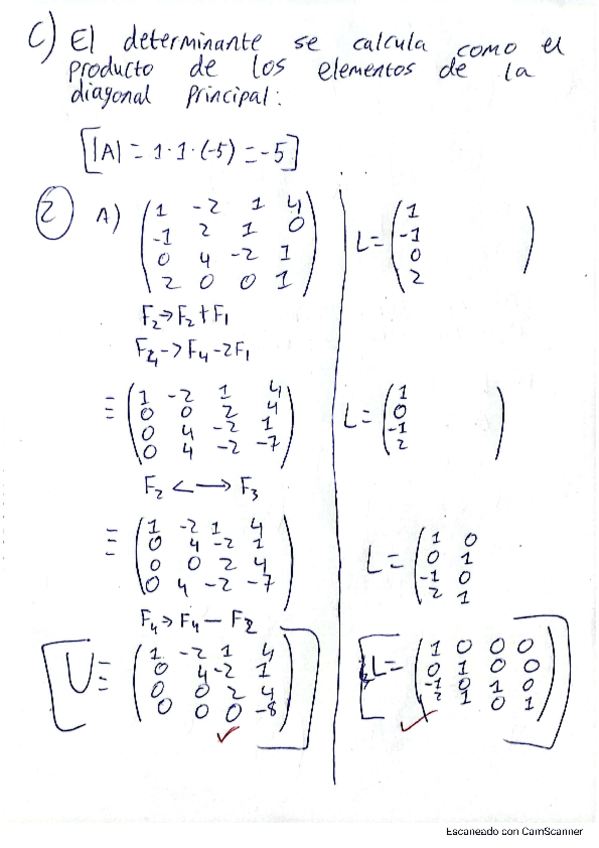 C) El determinante se calcula como el
producto de los elementos de la
diagonal principal:
[|A| = 1·1·(-5) = -5]
2 A) (1 -2 1 4
-1 2 1 0
0 4 -2 1
2 0 0 1)
L = (1
-1
0
2)
F2→F2+F1
F4->F4-2F1
≡ (1 -2 1 4
0 0 2 4
0 4 -2 1
0 4 -2 -7)
L = (1
0
-1
2)
F2 <—> F3
≡ (1 -2 1 4
0 4 -2 1
0 0 2 4
0 4 -2 -7)
L = (1 0
0 1
-1 0
2 1
F4→F4 — F2
U ≡ (1 -2 1 4
0 4 -2 1
0 0 2 4
0 0 0 -8)
L = (1 0 0 0
0 1 0 0
-1 0 1 0
2 1 0 1)
Escaneado con CamScanner